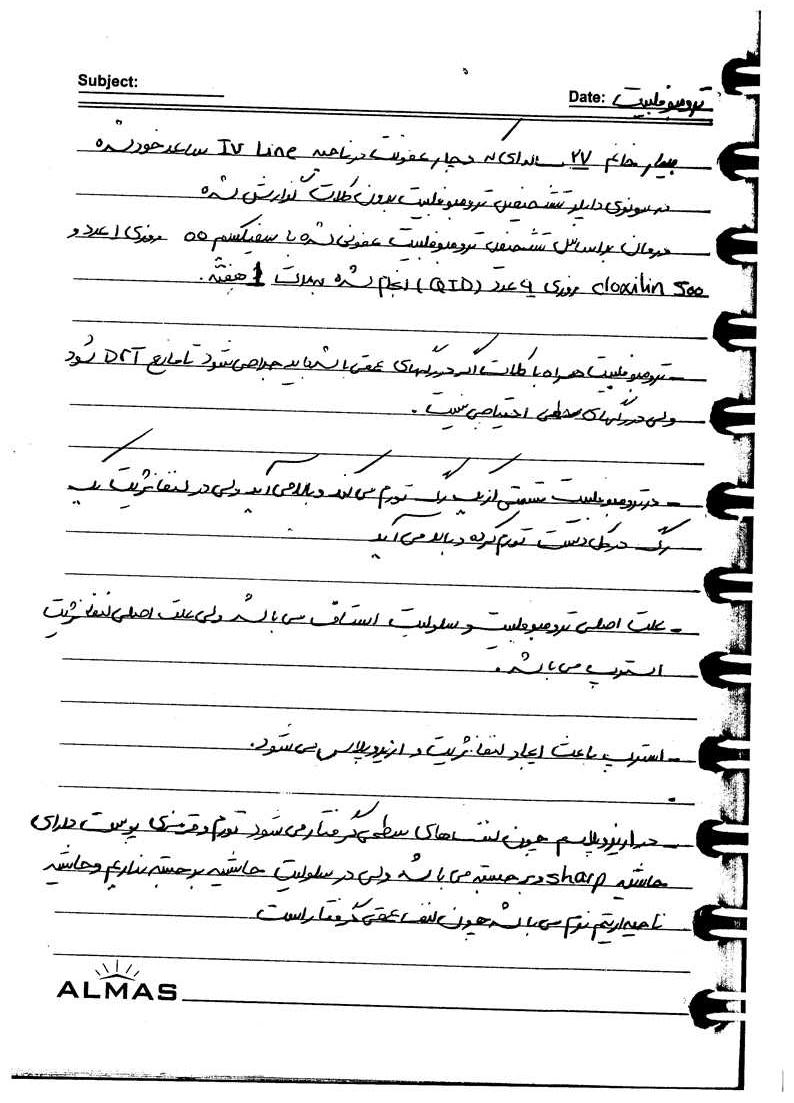 Subject:
Date: ترومبوفلبیت
بیمار خانم ۲۷ ساله‌ای که دچار عفونت در ناحیه IV Line ساعد خود شده
در سونوی داپلر تشخیص ترومبوفلبیت بدون کلات گزارش شده
درمان براساس تشخیص ترومبوفلبیت عفونی شده با سفیکسیم روزی ۱ عدد و
cloxilin 500 روزی ۴ عدد (QID) انجام شده بمدت 1 هفته.
- ترومبوفلبیت همراه با کلات اگر در رگهای عمقی باشد باید جراحی شود تا مانع DVT شود
ولی در رگهای سطحی احتیاجی نیست.
- در ترومبوفلبیت قسمتی از یک رگ تورم می‌کند و بالا می‌آید ولی در لنفانژیت یک
رگ در کل دست تورم کرده و بالا می‌آید
- علت اصلی ترومبوفلبیت و سلولیت استاف می‌باشد ولی علت اصلی لنفانژیت
استرپ می‌باشد.
- استرپ باعث ایجاد لنفانژیت و اریزیپلاس می‌شود.
- در اریزیپلاس چون لنف‌های سطحی گرفتار می‌شود تورم و قرمزی پوست دارای
حاشیه sharp و برجسته می‌باشد ولی در سلولیت حاشیه برجسته نداریم و حاشیه
ناحیه اریتم نرم می‌باشد چون لنف عمقی گرفتار است
ALMAS